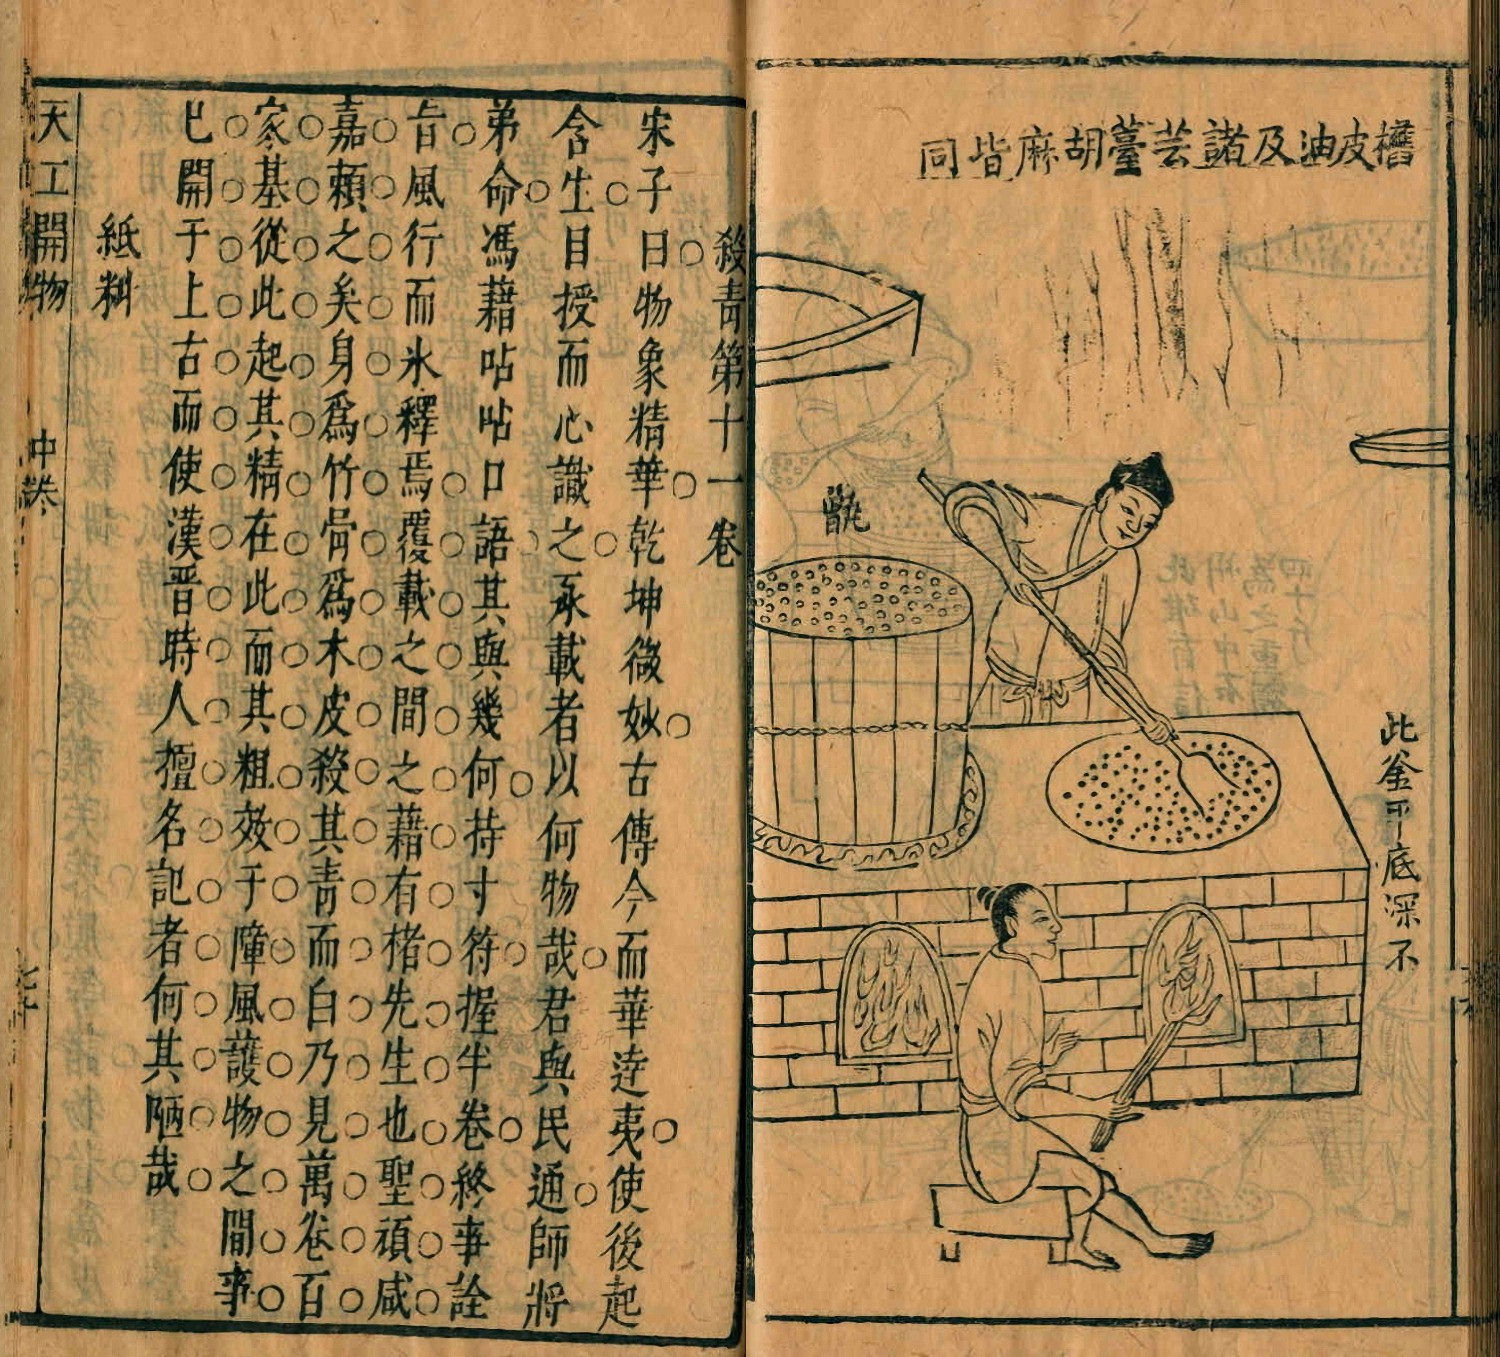 皮油及諸芸薹胡麻皆同
甑
此釜平底深不
殺青第十一卷
宋子曰物象精華乾坤微妙古傳今而華逹夷使後起
含生目授而心識之承載者以何物哉君與民通師將
弟命馮藉呫呫口語其與幾何持寸符握半卷終事詮
旨風行而氷釋焉覆載之間之藉有楮先生也聖頑咸
嘉賴之矣身爲竹骨爲木皮殺其青而白乃見萬卷百
家基從此起其精在此而其粗效于障風護物之間事
已開于上古而使漢晋時人擅名記者何其陋哉
紙料
天工開物
中卷